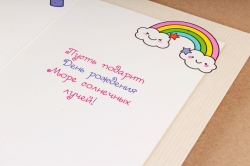 Пусть подарит
День рождения
Море солнечных
лучей!